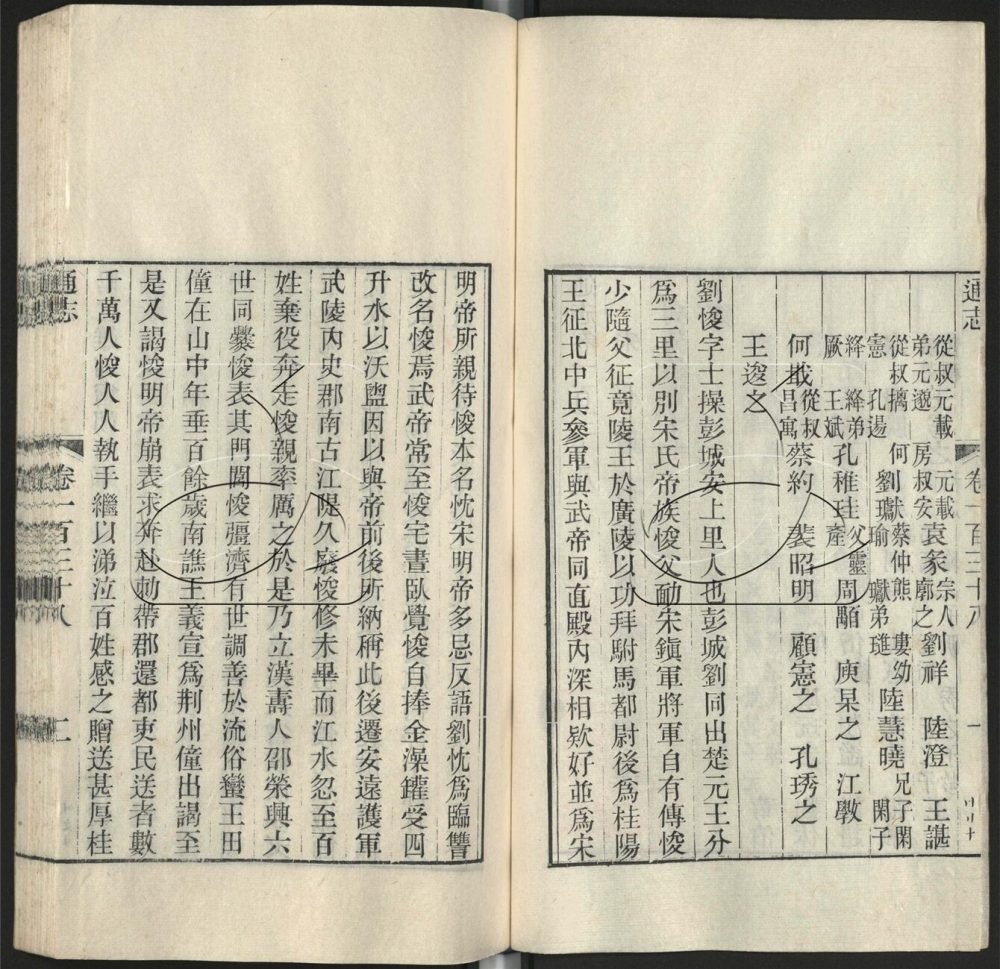 通志 卷一百三十八 一
從叔元載 元載宗人
弟元邈 房叔安 袁彖 廓之 劉祥 陸澄 王諶
從叔摛 何則 蔡仲熊 婁幼 陸慧曉 兄子閑
憲 孔逷 劉瓛 瑜 瓛弟璡 閑子
絳 絳弟 孔稚珪 父靈 周顒 庾杲之 江斆
厥 王斌 產
何戢 從叔昌㝢 蔡約 裴昭明 顧憲之 孔琇之
王逡之
劉悛字士操彭城安上里人也彭城劉同出楚元王分
爲三里以別宋氏帝族悛父勔宋鎮軍將軍自有傳悛
少隨父征竟陵王於廣陵以功拜駙馬都尉後爲桂陽
王征北中兵參軍與武帝同直殿內深相欵好並爲宋
明帝所親待悛本名忱宋明帝多忌反語劉忱爲臨讐
改名悛焉武帝常至悛宅晝臥覺悛自捧金澡鑵受四
升水以沃盥因以與帝前後所納稱此後遷安遠護軍
武陵內史郡南古江隄久廢悛修未畢而江水忽至百
姓棄役奔走悛親率厲之於是乃立漢壽人邵榮興六
世同爨悛表其門閭悛彊濟有世調善於流俗蠻王田
僮在山中年垂百餘歲南譙王義宣爲荆州僮出謁至
是又謁悛明帝崩表求奔赴勅帶郡還都吏民送者數
千萬人悛人人執手繼以涕泣百姓感之贈送甚厚桂
通志 卷一百三十八 二